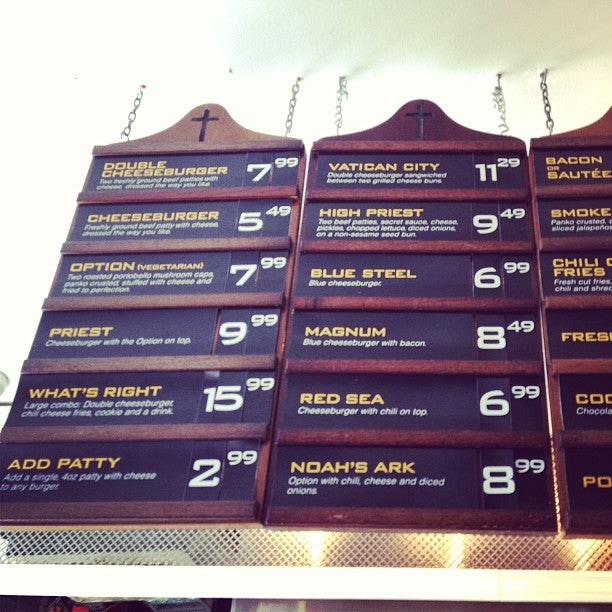 DOUBLE
CHEESEBURGER 7 99
Two freshly ground beef patties with
cheese, dressed the way you like.
CHEESEBURGER 5 49
Freshly ground beef patty with cheese,
dressed the way you like.
OPTION (VEGETARIAN) 7 99
Two roasted portobello mushroom caps,
panko crusted, stuffed with cheese and
fried to perfection.
PRIEST 9 99
Cheeseburger with the Option on top.
WHAT'S RIGHT 15 99
Large combo: Double cheeseburger,
chili cheese fries, cookie and a drink.
ADD PATTY 2 99
Add a single, 4oz patty with cheese
to any burger.
VATICAN CITY 11 29
Double cheeseburger sandwiched
between two grilled cheese buns.
HIGH PRIEST 9 49
Two beef patties, secret sauce, cheese,
pickles, chopped lettuce, diced onions,
on a non-sesame seed bun.
BLUE STEEL 6 99
Blue cheeseburger.
MAGNUM 8 49
Blue cheeseburger with bacon.
RED SEA 6 99
Cheeseburger with chili on top.
NOAH'S ARK 8 99
Option with chili, cheese and diced
onions.
BACON
OR
SAUTÉE
SMOKE
Panko crusted,
sliced jalapeños
CHILI C
FRIES
Fresh cut fries,
chili and shred
FRES
COO
Chocola
PO